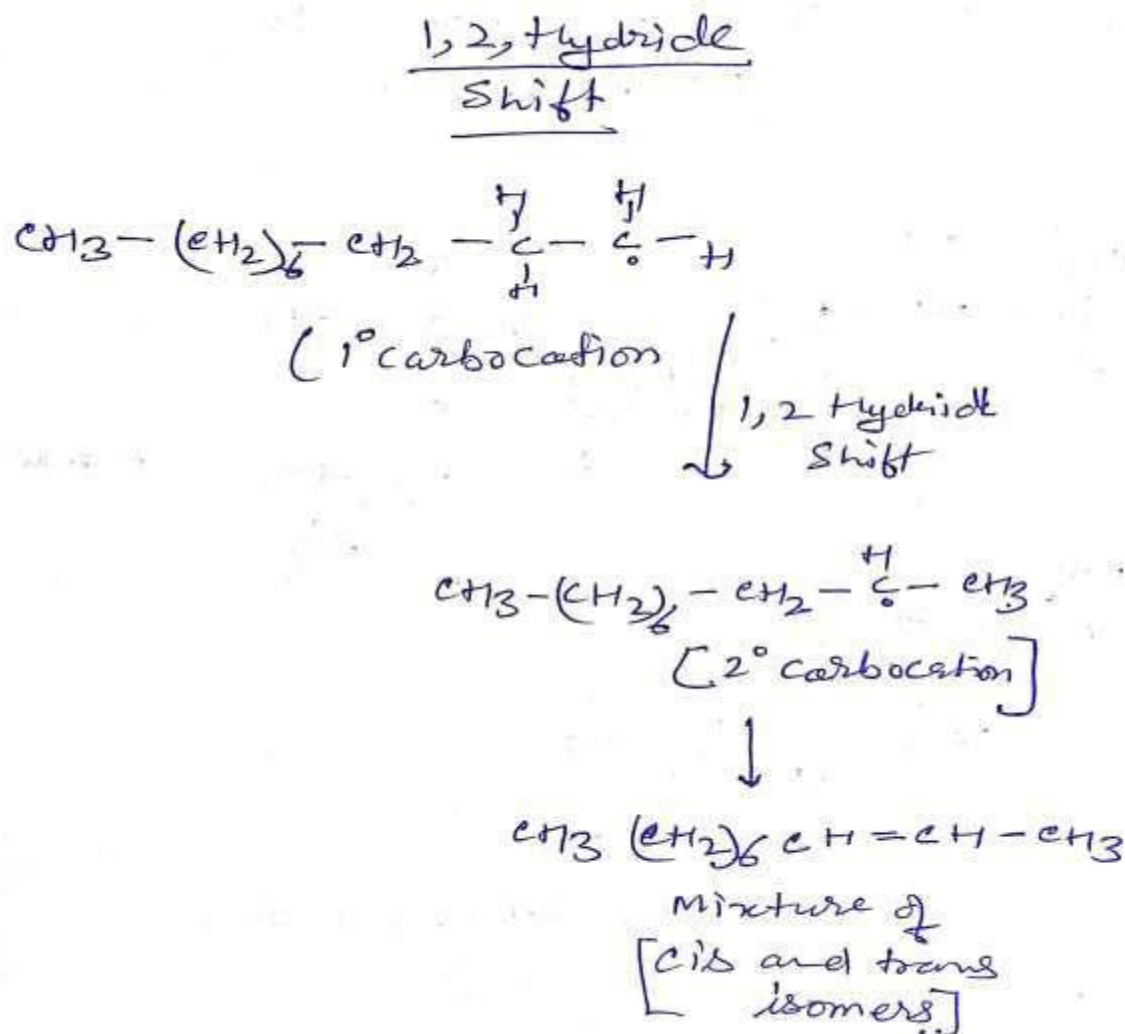 1,2, Hydride
Shift
H H
CH3 — (CH2)6 — CH2 — C — C — H
H
( 1° carbocation
1,2 Hydride
Shift
H
CH3-(CH2)6 - CH2 - C - CH3
[2° carbocation]
CH3 (CH2)6 CH = CH - CH3
Mixture of
[cis and trans
isomers]